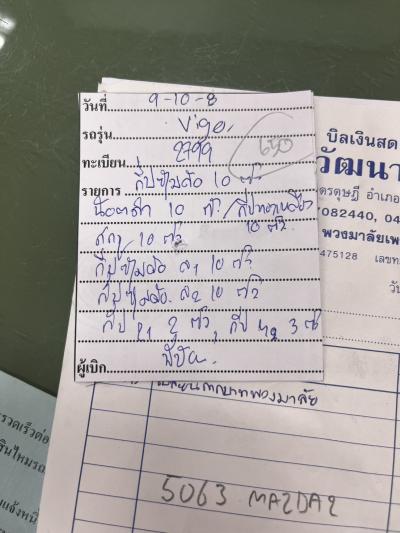 วันที่ 9-10-8
รถรุ่น Vigo.
ทะเบียน 2799
650
รายการ กิ๊ปซุ้มล้อ 10 ตัว
น็อตดำ 10 ตัว /
10 ตัว
สกรู 10 ตัว
กิ๊ปซุ้มล้อ ล1 10 ตัว
กิ๊ปซุ้มล้อ ล2 10 ตัว
กิ๊ป 2 ตัว, กิ๊ป 3 ตัว
ผู้เบิก
บิลเงินสด
วัฒนา
ดรดุษฎี อำเภอ
082440, 04
พวงมาลัยเพ
475128 เลขท
วัน
พวงมาลัย
5063 MAZDA2
รวดเร็วต่อ
สินไหมรถ
แจ้งหนี้